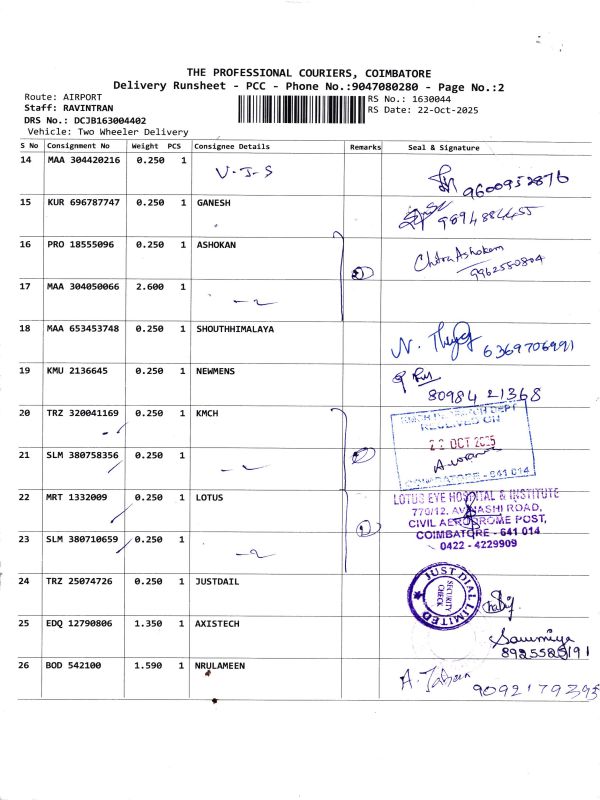 THE PROFESSIONAL COURIERS, COIMBATORE
Delivery Runsheet - PCC - Phone No.:9047080280 - Page No.:2
Route: AIRPORT
Staff: RAVINTRAN
DRS No.: DCJB163004402
Vehicle: Two Wheeler Delivery
RS No.: 1630044
RS Date: 22-Oct-2025
S No Consignment No Weight PCS Consignee Details Remarks Seal & Signature
14 MAA 304420216 0.250 1 V-J-S 9600952876
15 KUR 696787747 0.250 1 GANESH 9894884455
16 PRO 18555096 0.250 1 ASHOKAN 2 Chitra Ashokan 9962580804
17 MAA 304050066 2.600 1 - 2
18 MAA 653453748 0.250 1 SHOUTHHIMALAYA N. 6369706991
19 KMU 2136645 0.250 1 NEWMENS 80984 21368
20 TRZ 320041169 0.250 1 KMCH
RECEIVED ON
22 OCT 2025
COIMBATORE - 641 014
21 SLM 380758356 0.250 1
22 MRT 1332009 0.250 1 LOTUS
LOTUS EYE HOSPITAL & INSTITUTE
770/12, AVINASHI ROAD,
CIVIL AERODROME POST,
COIMBATORE - 641 014
0422 - 4229909
23 SLM 380710659 0.250 1 - 2
24 TRZ 25074726 0.250 1 JUSTDAIL
JUST DIAL LIMITED
SECURITY
CHECK
25 EDQ 12790806 1.350 1 AXISTECH Sowmiya
26 BOD 542100 1.590 1 NRULAMEEN A. 9092179395